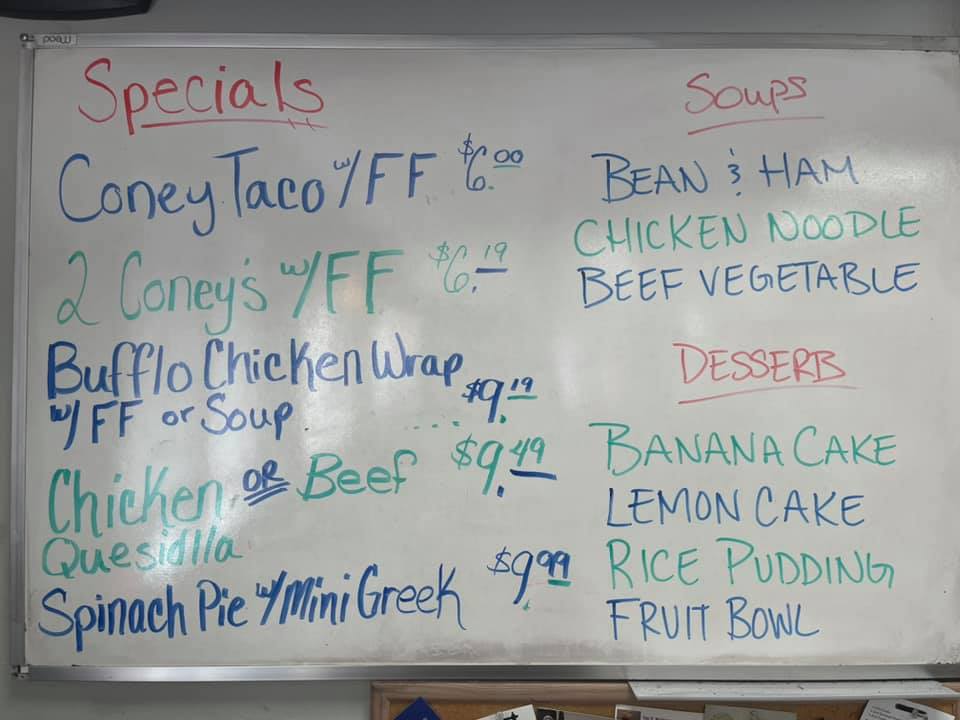 Specials
Coney Taco w/FF $6.00
2 Coney's w/FF $6.19
Bufflo Chicken Wrap
w/FF or Soup $9.19
Chicken OR Beef $9.49
Quesidlla
Spinach Pie w/Mini Greek $9.99
Soups
BEAN & HAM
CHICKEN NOODLE
BEEF VEGETABLE
DESSERB
BANANA CAKE
LEMON CAKE
RICE PUDDING
FRUIT BOWL